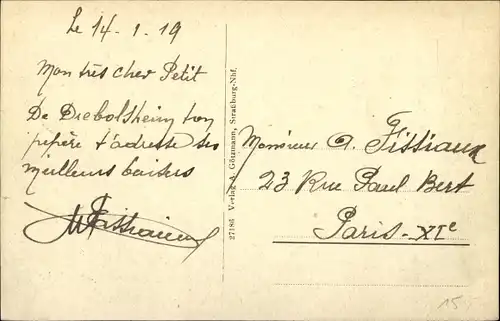 Le 14-1-19
Mon très cher Petit
De Diebolsheim ton
pépère t'adresse ses
meilleurs baisers
Fissiaux
27186 Verlag A. Götzmann, Straßburg-Nhf.
Monsieur A. Fissiaux
23 Rue Paul Bert
Paris-XIe
15